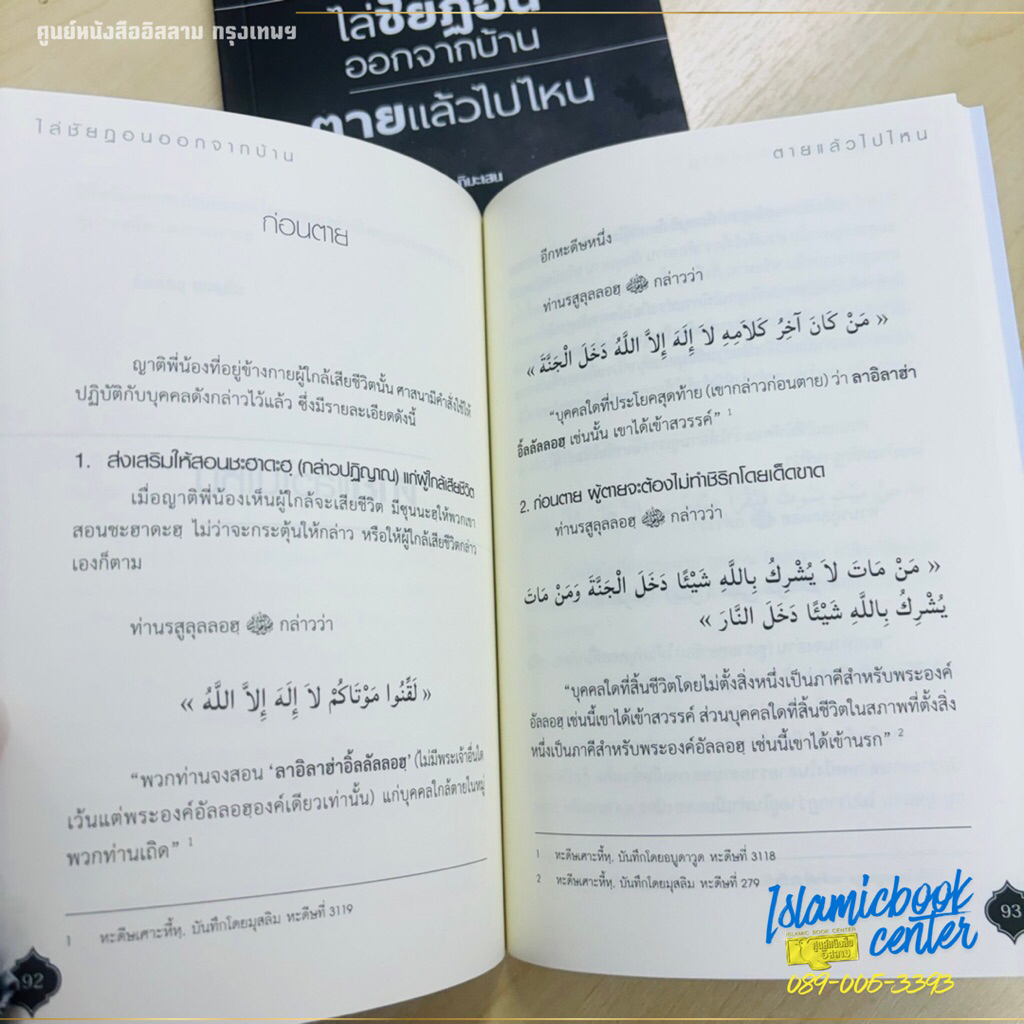 ศูนย์หนังสืออิสลาม กรุงเทพฯ
ไล่ชัยฏอน
ออกจากบ้าน
ตายแล้วไปไหน
ไล่ชัยฏอนออกจากบ้าน
ก่อนตาย
ญาติพี่น้องที่อยู่ข้างกายผู้ใกล้เสียชีวิตนั้น ศาสนามีคำสั่งใช้ให้
ปฏิบัติกับบุคคลดังกล่าวไว้แล้ว ซึ่งมีรายละเอียดดังนี้
1. ส่งเสริมให้สอนชะฮาดะฮฺ (กล่าวปฏิญาณ) แก่ผู้ใกล้เสียชีวิต
เมื่อญาติพี่น้องเห็นผู้ใกล้จะเสียชีวิต มีซุนนะฮฺให้พวกเขา
สอนชะฮาดะฮฺ ไม่ว่าจะกระตุ้นให้กล่าว หรือให้ผู้ใกล้เสียชีวิตกล่าว
เองก็ตาม
ท่านรสูลุลลอฮฺ ﷺ กล่าวว่า
« لَقِّنُوا مَوْتَاكُمْ لاَ إِلَهَ إِلاَّ اللَّهُ »
“พวกท่านจงสอน ‘ลาอิลาฮ่าอิ้ลลัลลอฮฺ’ (ไม่มีพระเจ้าอื่นใด
เว้นแต่พระองค์อัลลอฮฺองค์เดียวเท่านั้น) แก่บุคคลใกล้ตายในหมู่
พวกท่านเถิด” 1
1 หะดีษเศาะหี้หฺ. บันทึกโดยมุสลิม หะดีษที่ 3119
92
ตายแล้วไปไหน
อีกหะดีษหนึ่ง
ท่านรสูลุลลอฮฺ ﷺ กล่าวว่า
« مَنْ كَانَ آخِرُ كَلاَمِهِ لاَ إِلَهَ إِلاَّ اللَّهُ دَخَلَ الْجَنَّةَ »
“บุคคลใดที่ประโยคสุดท้าย (เขากล่าวก่อนตาย) ว่า ลาอิลาฮ่า
อิ้ลลัลลอฮฺ เช่นนั้น เขาได้เข้าสวรรค์” 1
2. ก่อนตาย ผู้ตายจะต้องไม่ทำชิริกโดยเด็ดขาด
ท่านรสูลุลลอฮฺ ﷺ กล่าวว่า
« مَنْ مَاتَ لاَ يُشْرِكُ بِاللَّهِ شَيْئًا دَخَلَ الْجَنَّةَ وَمَنْ مَاتَ
يُشْرِكُ بِاللَّهِ شَيْئًا دَخَلَ النَّارَ »
“บุคคลใดที่สิ้นชีวิตโดยไม่ตั้งสิ่งหนึ่งเป็นภาคีสำหรับพระองค์
อัลลอฮฺ เช่นนี้เขาได้เข้าสวรรค์ ส่วนบุคคลใดที่สิ้นชีวิตในสภาพที่ตั้งสิ่ง
หนึ่งเป็นภาคีสำหรับพระองค์อัลลอฮฺ เช่นนี้เขาได้เข้านรก” 2
1 หะดีษเศาะหี้หฺ. บันทึกโดยอบูดาวูด หะดีษที่ 3118
2 หะดีษเศาะหี้หฺ. บันทึกโดยมุสลิม หะดีษที่ 279
93
Islamicbook
center
ISLAMIC BOOK CENTER
ศูนย์หนังสือ
อิสลาม
089-005-3393